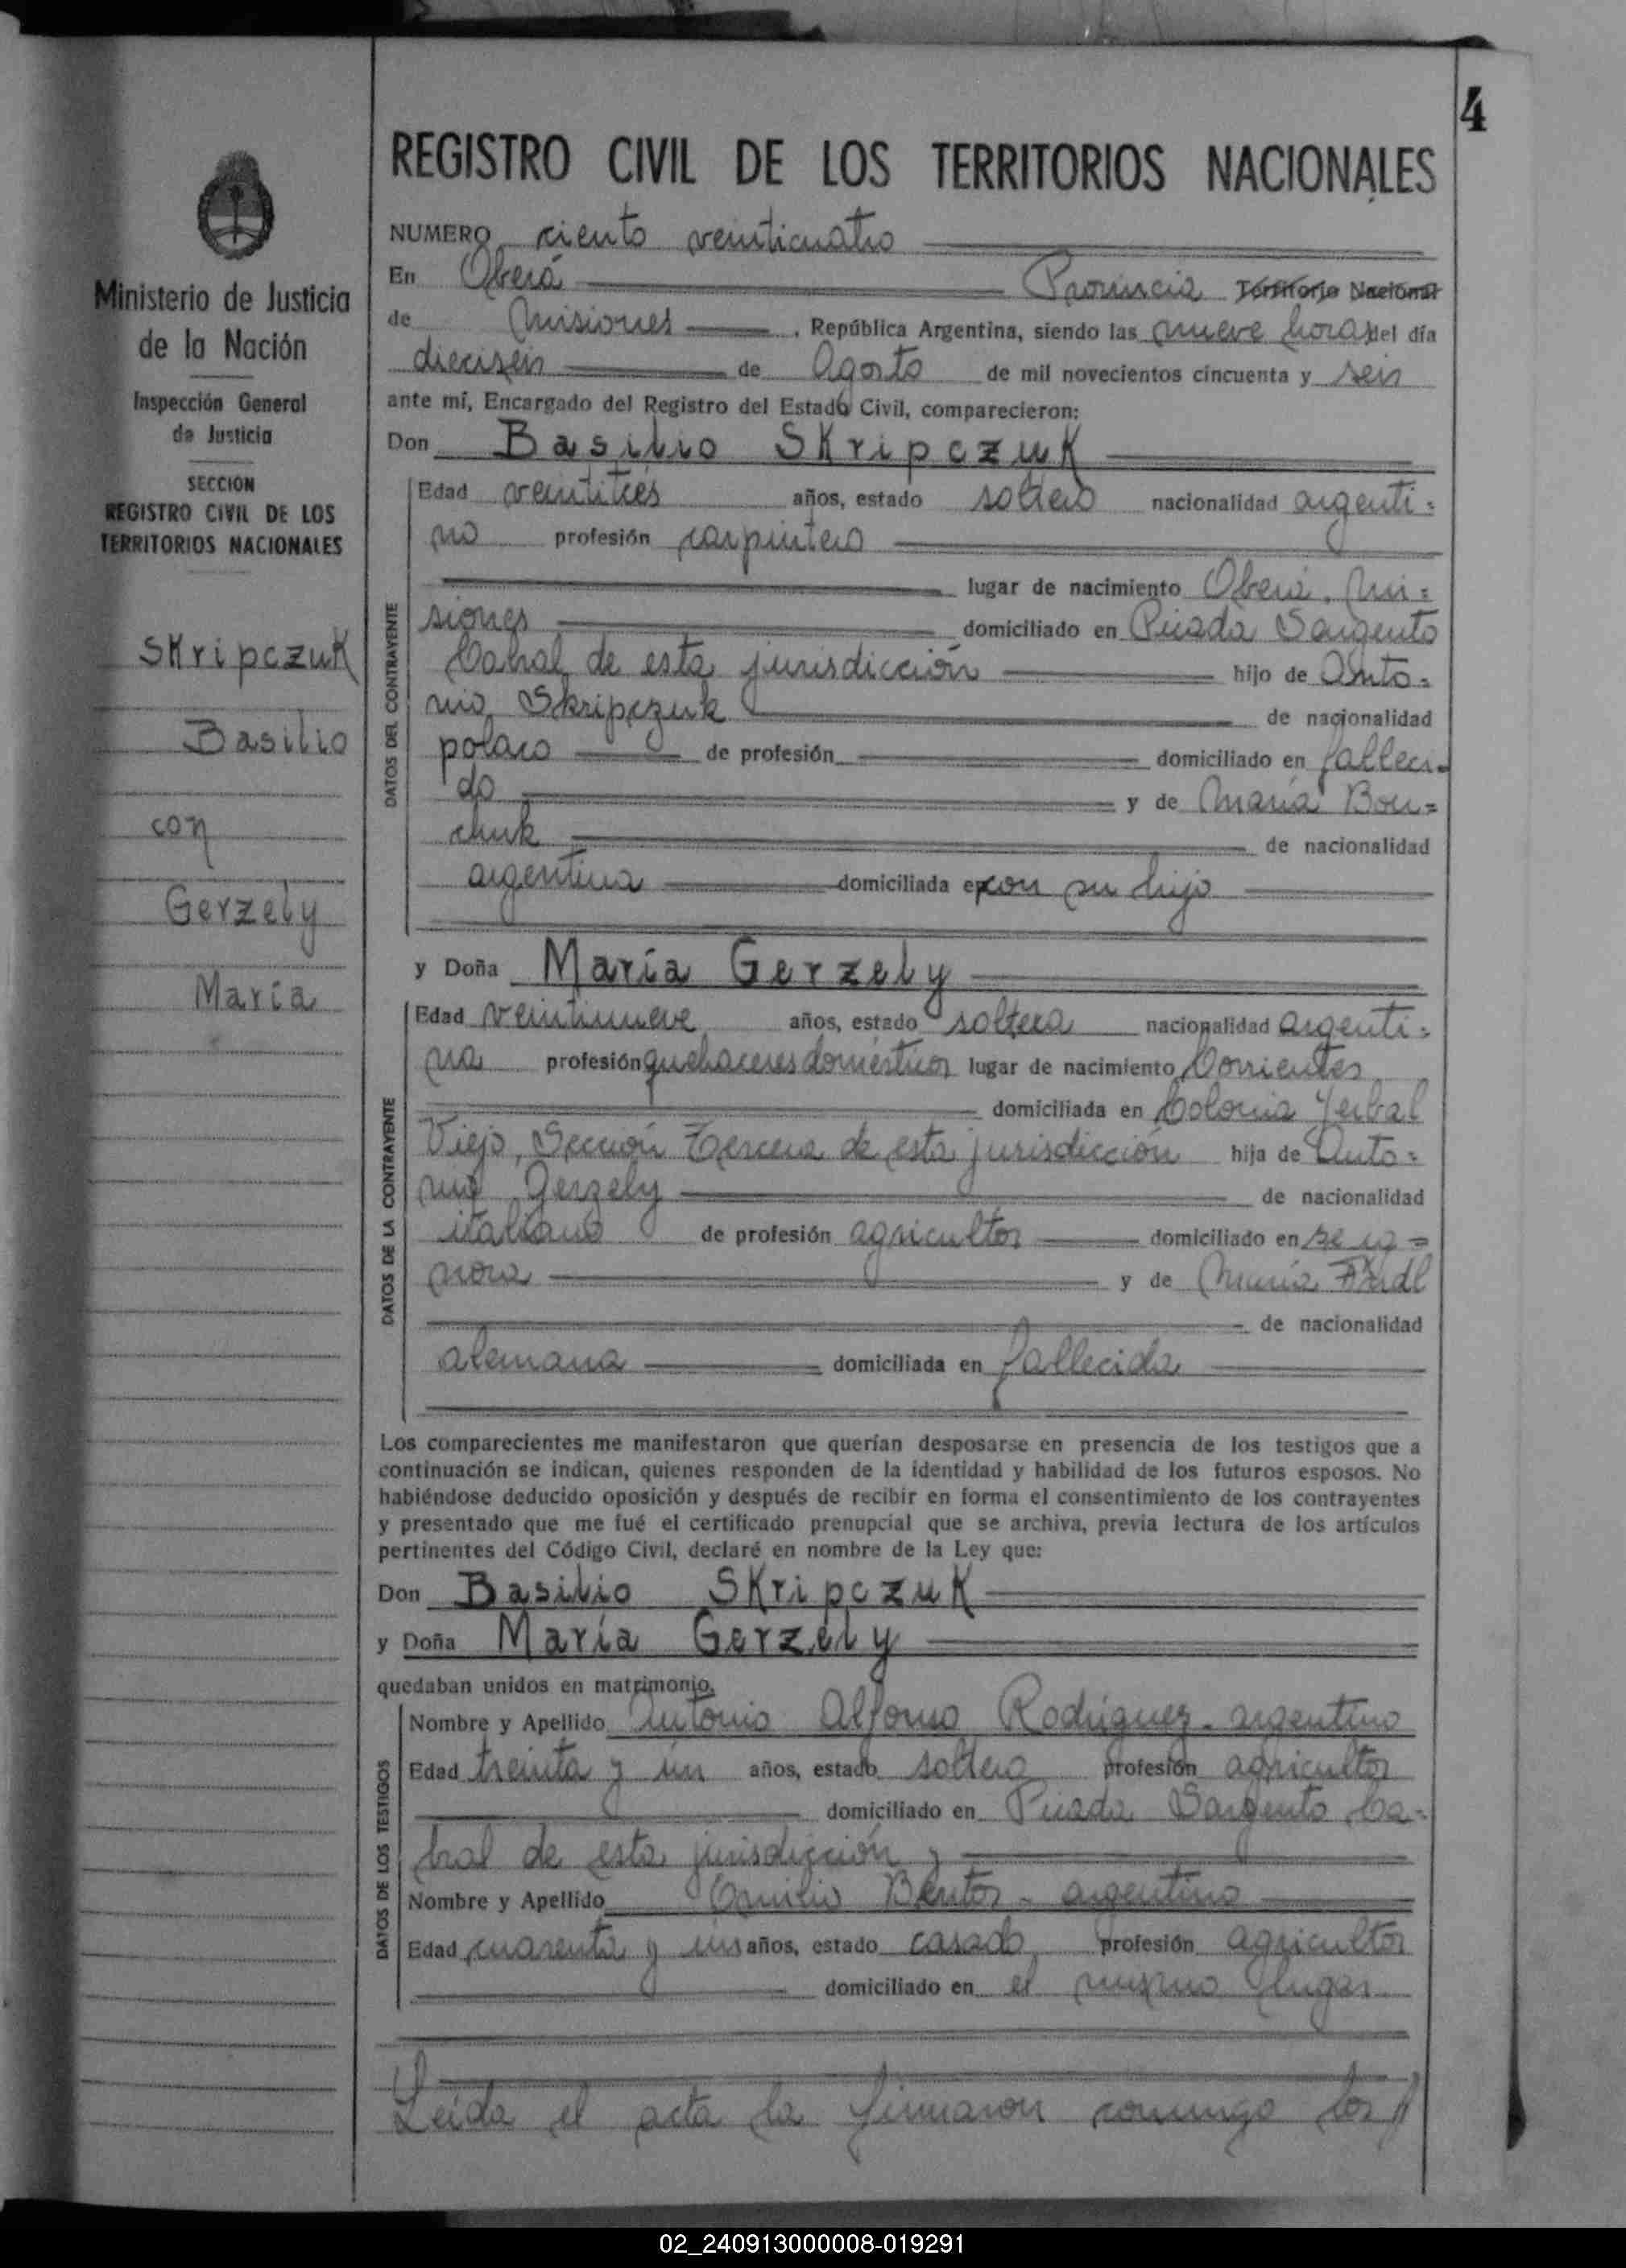 4
REGISTRO CIVIL DE LOS TERRITORIOS NACIONALES
Ministerio de Justicia
de la Nación
Inspección General
de Justicia
SECCION
REGISTRO CIVIL DE LOS
TERRITORIOS NACIONALES
SKripczuK
Basilio
con
Gerzely
María
NUMERO ciento veinticuatro
En Oberá Provincia Territorio Nacional
de Misiones, República Argentina, siendo las nueve horas del día
dieciseis de Agosto de mil novecientos cincuenta y seis
ante mí, Encargado del Registro del Estado Civil, comparecieron:
Don Basilio SKripczuK
DATOS DEL CONTRAYENTE
Edad veintitres años, estado soltero nacionalidad argenti=
no profesión carpintero
lugar de nacimiento Oberá, Mi=
siones domiciliado en Picada Sargento
Cabral de esta jurisdicción hijo de Anto=
nio Skripczuk de nacionalidad
polaco de profesión domiciliado en falleci=
do y de María Bou=
chuk de nacionalidad
argentina domiciliada en con su hijo
y Doña María Gerzely
DATOS DE LA CONTRAYENTE
Edad veintinueve años, estado soltera nacionalidad argenti=
na profesión quehaceres domésticos lugar de nacimiento Corrientes
domiciliada en Colonia Yerbal
Viejo, Sección Tercera de esta jurisdicción hija de Anto=
nio Gerzely de nacionalidad
italiano de profesión agricultor domiciliado en se ig=
nora y de María
de nacionalidad
alemana domiciliada en fallecida
Los comparecientes me manifestaron que querían desposarse en presencia de los testigos que a
continuación se indican, quienes responden de la identidad y habilidad de los futuros esposos. No
habiéndose deducido oposición y después de recibir en forma el consentimiento de los contrayentes
y presentado que me fué el certificado prenupcial que se archiva, previa lectura de los artículos
pertinentes del Código Civil, declaré en nombre de la Ley que:
Don Basilio SKripczuK
y Doña María Gerzely
quedaban unidos en matrimonio.
DATOS DE LOS TESTIGOS
Nombre y Apellido Antonio Alfonso Rodríguez - argentino
Edad treinta y un años, estado soltero profesión agricultor
domiciliado en Picada Sargento Ca=
bral de esta jurisdicción y
Nombre y Apellido Emilio Bentos - argentino
Edad cuarenta y un años, estado casado profesión agricultor
domiciliado en el mismo lugar
Leída el acta la firmaron conmigo los
02_240913000008-019291